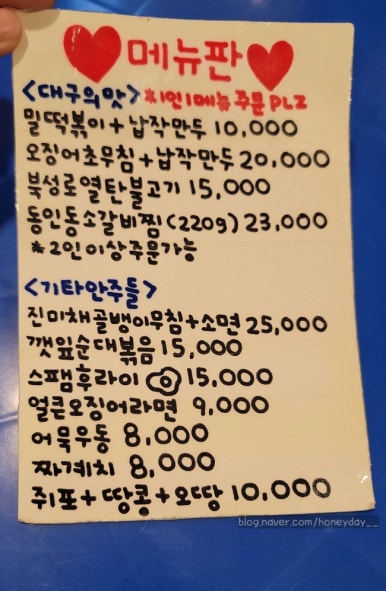 메뉴판
<대구의맛> *1인1메뉴 주문 PLZ
밀떡볶이+납작만두 10,000
오징어초무침+납작만두 20,000
북성로열탄불고기 15,000
동인동소갈비찜(220g) 23,000
*2인이상주문가능
<기타안주들>
진미채골뱅이무침+소면 25,000
깻잎순대볶음 15,000
스팸후라이 15,000
얼큰오징어라면 9,000
어묵우동 8,000
짜계치 8,000
쥐포+땅콩+오땅 10,000
blog.naver.com/honeyday__